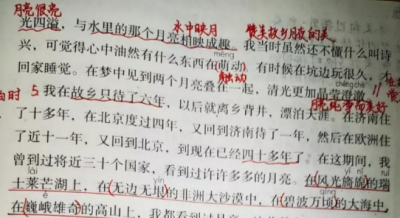 月亮很亮
水中映月 赞美故乡月夜的美
光四溢，与水里的那个月亮相映成趣。我当时虽然还不懂什么叫诗
méng
兴，可觉得心中油然有什么东西在萌动。有时候在坑边玩很久，才
触动
chè
回家睡觉。在梦中见到两个月亮叠在一起，清光更加晶莹澄澈。
5 我在故乡只待了六年，以后就离乡背井，漂泊天涯。在济南住
了十多年，在北京度过四年，又回到济南待了一年，然后在欧洲住
了近十一年，又回到北京，到现在已经四十多年了。在这期间，我
曾到过将近三十个国家，看到过许许多多的月亮。在风光旖旎的瑞
士莱芒湖上，在无边无垠的非洲大沙漠中，在碧波万顷的大海中，
在巍峨雄奇的高山上，我都看到过月亮